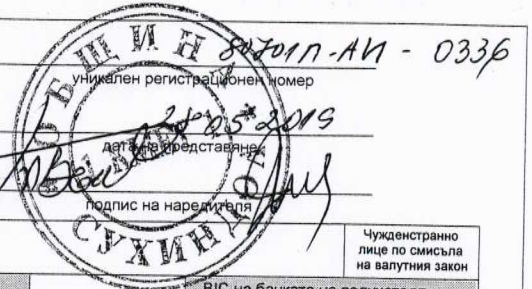 ОБЩИНА
- 0336
уникален регистрационен номер
05 2019
дата на представяне
подпис на наредителя
СУХИНДОЛ
Чужденстранно
лице по смисъла
на валутния закон
BIC на банката на получателя